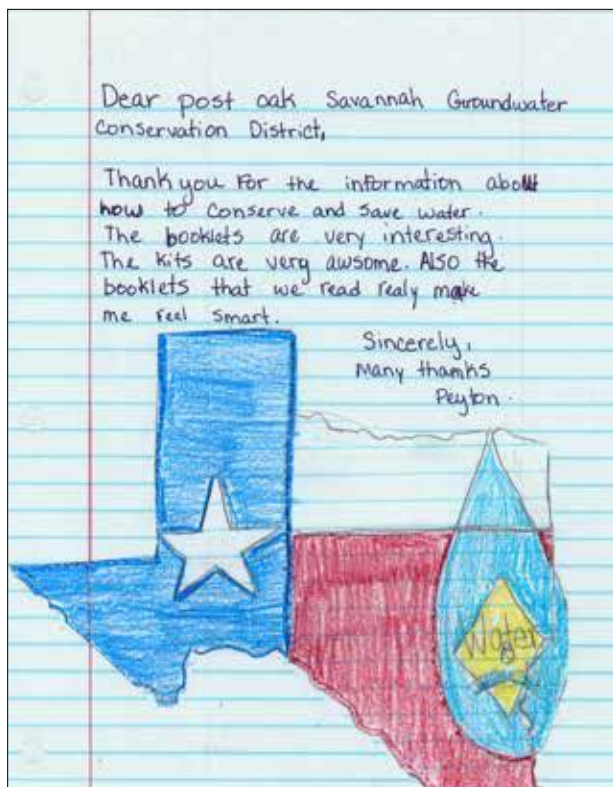 Dear post oak Savannah Groundwater
Conservation District,
Thank you For the information about
how to conserve and save water.
The booklets are very interesting.
The kits are very awsome. Also the
booklets that we read realy make
me Feel smart.
Sincerely,
Many thamks
Peyton.
Water